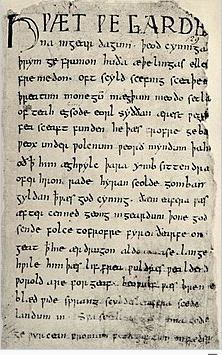 HǷÆT ǷE GARDE
na ingear dagum. þeod cyninga
þrym ge frunon huða æþelingas elle
fre medon. oft scyld scefing sceaþe
þreatum monegū mægþum meodo setla
of teah egsode eorl syððan ærest ƿea
fea sceaft funden he þæs frofre geba
ƿeox under ƿolcnum ƿeorð myndum þah
oð ꝥ him æghƿylc þara ymb sittendra
ofer hron rade hyran scolde gomban
gyldan ꝥ ƿæs god cyning. ðæm eafera ƿæs
æfter cenned geong ingeardum þone god
sende folce tofrofre fyren ðearfe on
geat ꝥ hie ær drugon aldor ase. lange
hƿile him þæs lif frea ƿuldres ƿealdend
ƿorold are for geaf. beoƿulf ƿæs breme
blæd ƿide sprang scyldes eafera scede
landum in. Sƿa sceal uma gode
ge ƿyrcean fromum feoh giftum